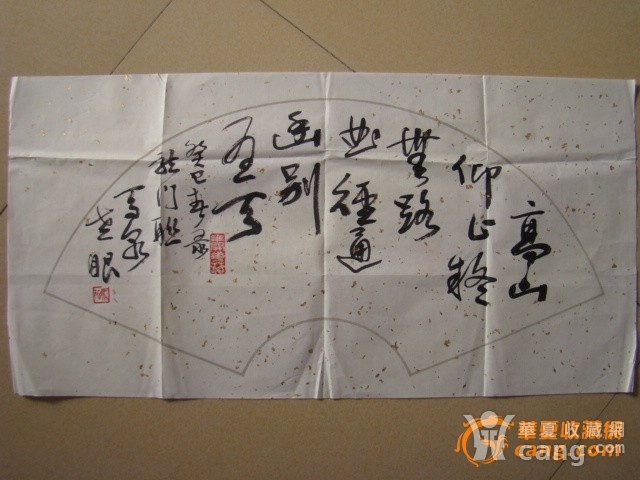 高山
仰止疑
無路
曲徑通
幽别
有天
癸巳春录
门联
眼
華夏收藏網
cang.com